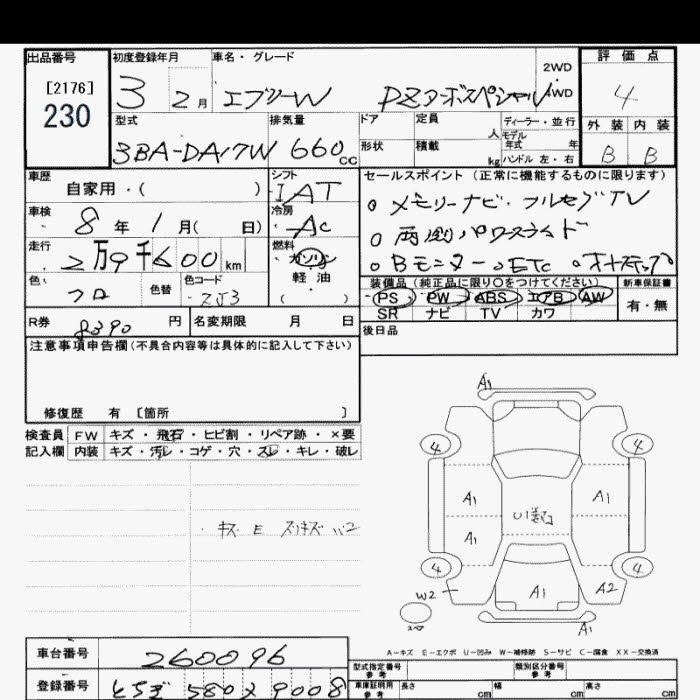 出品番号
[2176]
230
初度登録年月
3 2月
車名・グレード
エブリーW PZターボスペシャル
2WD
・
4WD
評価点
4
外装 内装
B B
型式
3BA-DA17W
排気量
660cc
ドア
定員
人
ディーラー・並行
形状
積載
kg
モデル年式 年
ハンドル 左・右
車歴
自家用・( )
シフト
IAT
車検
8年1月( 日)
冷房
AC
走行
2万9千600km
燃料
ガソリン
軽油
( )
色
クロ
色替
色コード
ZJ3
セールスポイント (正常に機能するものに限ります)
○ メモリーナビ・フルセグTV
○ 両側パワースライド
○ Bモニター ○ETC ○オートステップ
装備品 (純正品に限り○をつけてください)
PS PW ABS エアB AW
SR ナビ TV カワ
新車保証書
有・無
後日品
R券
8390円
名変期限 月 日
注意事項申告欄(不具合内容等は具体的に記入して下さい)
修復歴 有 [箇所 ]
検査員 FW キズ・飛石・ヒビ割・リペア跡・×要
記入欄 内装 キズ・汚レ・コゲ・穴・スレ・キレ・破レ
・キズ E スリキズ
A1
4 4
A1 A1
U1
A1
4 4
W2 A1 A2
A1
A-キズ E-エクボ U-凹み W-補修跡 S-サビ C-腐食 XX-交換済
車台番号
260096
登録番号
580 9008
型式指定番号
参考
類別区分番号
参考
車庫証明用
参考
長さ cm 幅 cm 高さ cm